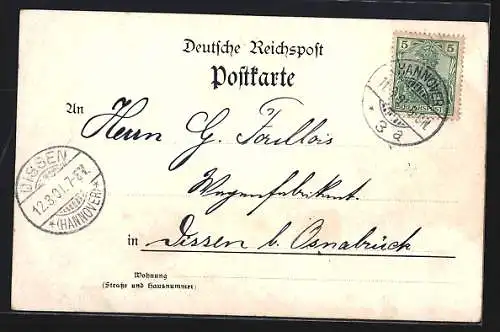 Deutsche Reichspost
Postkarte
5 5
HANNOVER
3 a
An
Herrn G.
Wagenfabrikant.
in Dissen b. Osnabrück
DISSEN
12.3.01.7-8V.
*(HANNOVER)*
Wohnung
(Straße und Hausnummer)